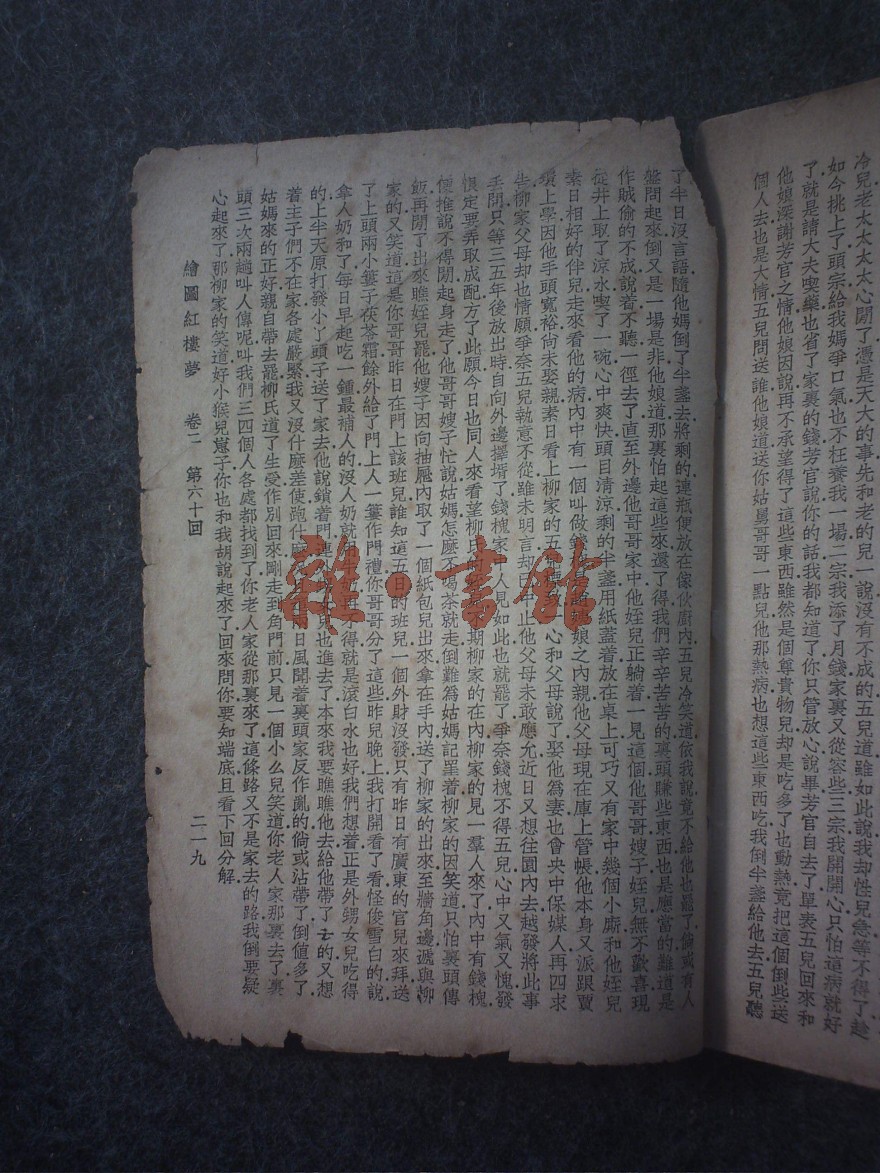 冷兒老太太太太心閒了憑是天大的事先和老的兒一說沒有不成的五兒道雖如此說我却性兒急等不得了趁
如今挑上了頭宗給我媽爭口氣也不枉養我一場二宗我添了月錢家裏又從容些三宗我開開心只怕這病就好
了就是請大夫喫藥也省了家裏的錢芳官說你的話我都知道了你只管放心說畢芳官自去了單表五兒回來和
他娘深謝芳官之情他娘因說再不承望得了這些東西雖然是個尊貴物兒却是吃多了也動熱竟把這個倒些送
個人去也是大情五兒問送誰他娘道送你姑舅哥哥一點兒他那熱病也想這些東西吃我倒半盞給他去五兒聽
了半日沒言語隨他媽倒了半盞去將剩的連瓶便放在傢伙厨內五兒冷笑道依我說竟不給他也罷了倘或有人
盤問起來倒又是一場是非他娘道那裏怕起這些來還了得我們辛辛苦苦的裏頭賺些東西也是應當的難道是
作賊偷的不成說着不聽一徑去了直至外邊他哥哥家中他姪兒正躺着一見這個他哥哥嫂子姪兒無不歡喜現
從井上取了涼水喫了一碗心中爽快頭目清涼剩的半盞用紙蓋着放在桌上可巧又有家中幾個小廝和他姪兒
素日相好的伴兒走來看他的病內中有一個叫做錢 娘之內親他父母現在庫上管帳他本身又派跟賈
環上學因他手頭寬裕尚未娶親素日看上柳家的五 心和父母說了娶他爲妻也曾央中保媒人再四求
告柳家父母却也情願爭奈五兒執意不從雖未明言却 中止他父母未敢應允近日又想往園內去越發將此事
丢開只等三五年後放出時自向外邊擇壻了錢槐家 人見如此也就罷了爭奈錢槐不得五兒心中又氣又愧發
恨定要弄取成配方了此願今日也同人來看望柳氏 期柳家的在內柳家的見一羣人來了內中有錢槐
便推說不得閒起身走了他哥哥嫂子忙說姑媽怎麼不喝茶就走倒難爲姑媽記罣着柳家的因笑道只怕裏頭傳
飯再閒了出來瞧姪兒罷他嫂子因向抽屜內取了一個紙包兒出來拿在手內送了柳家的出來至牆角邊遞與柳
家的又笑道這是你哥哥昨日在門上該班兒誰知道五日的班兒一個外財沒發只有昨日有廣東的官兒來拜送
了上頭兩小簍子茯苓霜餘外給了門上人一簍作門禮你哥哥分了這些昨兒晚上我打開看了看怪俊雪白的說
拿人奶和了每日早起吃一鍾最補人的沒人奶就 得就是滾白水也好我們想着正是外甥女兒吃得
的上半天原打發小丫頭子送了家去他說鎖着門連 也進去了本來我要瞧瞧他去給他帶了去的又想
着主子們不在家各處嚴緊我又沒什麼差使跑什 日風聞着裏頭家反作亂的倘或沾帶了倒值多了
姑媽來的正好親自帶去罷柳氏道了生受作別回來剛走到角門前只見一個小么兒笑道你老人家那裏去了裏
頭三次兩趟叫人傳呢叫我們三四個人各處都找到了你老人家從那裏來了這條路又不是家去的路我倒要疑
心起來了那柳家的笑道好小猴兒崽子你也和我胡說起來了回來問你要知端底且看下回分解
繪圖紅樓夢 卷二 第六十回 二一九
雜·書館